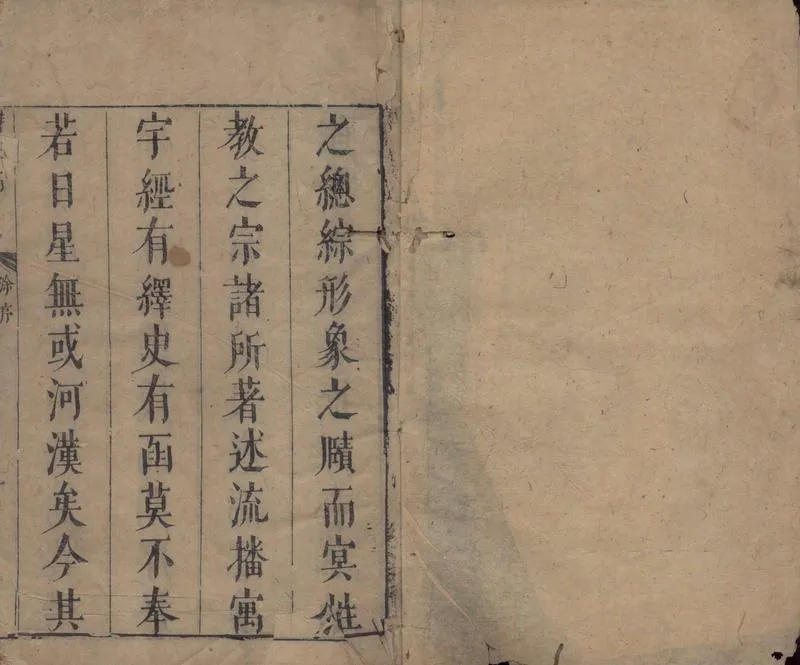 之總綜形象之賾而冥性
教之宗諸所著述流播寓
宇經有繹史有函莫不奉
若日星無或河漢矣今其
序